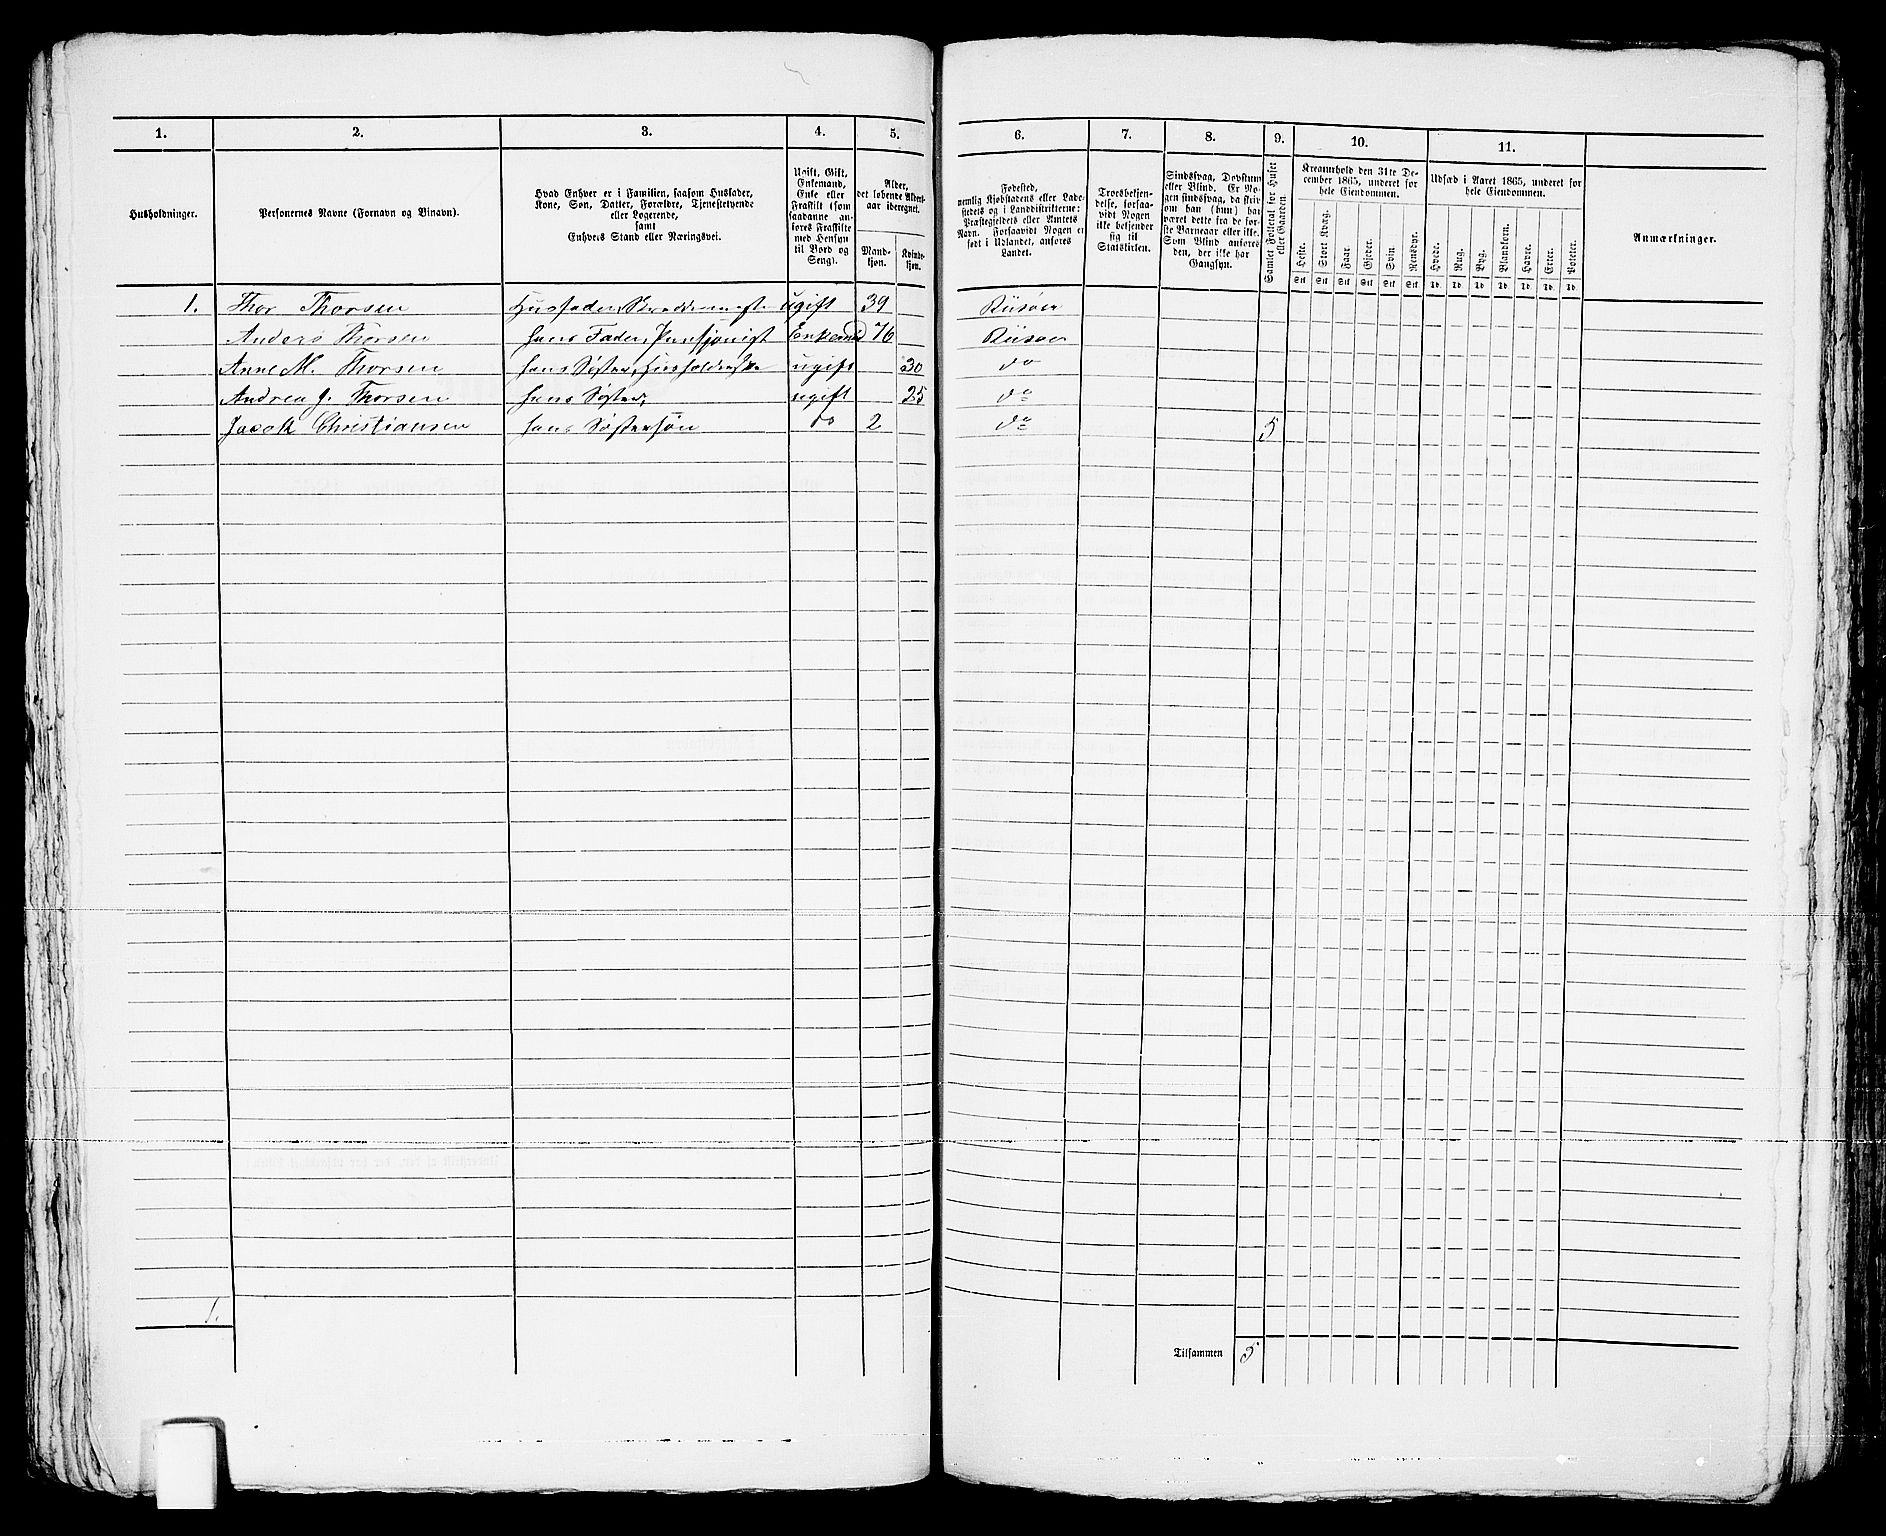 1. 2. 3. 4. 5. 6. 7. 8. 9. 10. 11.
Husholdninger.
Personernes Navne (Fornavn og Binavn).
Hvad Enhver er i Familien, saasom Husfader,
Kone, Søn, Datter, Forældre, Tjenestetyende
eller Logerende,
samt
Enhvers Stand eller Næringsvei.
Ugift, Gift,
Enkemand,
Enke eller
Fraskilt (som
saadanne an-
føres Fraskilte
med Hensyn
til Bord og
Seng).
Alder,
det løbende Alders-
aar iberegnet.
Mand-
kjøn.
Kvinde-
kjøn.
Fødested,
nemlig Kjøbstadens eller Lade-
stedets og i Landdistrikterne:
Præstegjeldets eller Amtets
Navn. Forsaavidt Nogen er
født i Udlandet, anføres
Landet.
Troesbekjen-
delse, forsaa-
vidt Nogen
ikke bekjender
sig til
Statskirken.
Sindssvag, Døvstum
eller Blind. Er No-
gen sindssvag, da skri-
ves om han (hun) har
været dette fra de før-
ste Barneaar eller ikke.
Som Blind anføres
den, der ikke har
Gangsyn.
Samlet Folketal for Huset
eller Gaarden.
Kreaturhold den 31te De-
cember 1865, underet for
hele Eiendommen.
Heste. Stort Kvæg. Faar. Gjeder. Svin. Rensdyr.
Stk Stk Stk Stk Stk Stk
Udsæd i Aaret 1865, underet for
hele Eiendommen.
Hvede. Rug. Byg. Blandkorn. Havre. Erter. Poteter.
Td. Td. Td. Td. Td. Td. Td.
Anmærkninger.
1. Thor Thorsen Husfader, Skræddermester ugift 39 Riisøer
Anders Thorsen hans Fader, Pensjonist Enkemd 76 Riisøer
Anne M. Thorsen hans Søster, Husholderske ugift 30 do
Andrea J. Thorsen hans Søster, ugift 25 do
Jacob Christiansen hans Søstersøn do 2 do 5
1.
Tilsammen 5